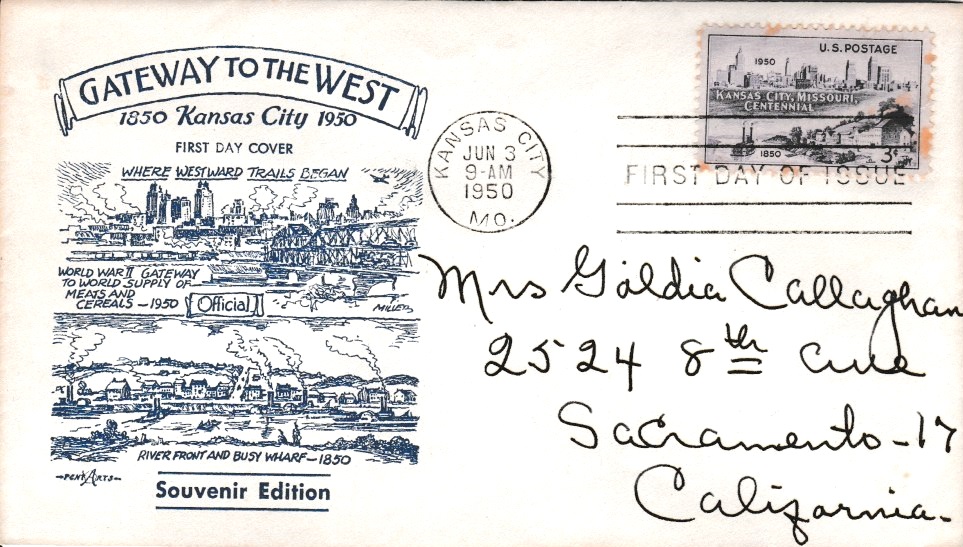 GATEWAY TO THE WEST
1850 Kansas City 1950
FIRST DAY COVER
WHERE WESTWARD TRAILS BEGAN
WORLD WAR II GATEWAY
TO WORLD SUPPLY OF
MEATS AND
CEREALS - 1950
Official
MILLER
RIVER FRONT AND BUSY WHARF - 1850
PENT ARTS
Souvenir Edition
KANSAS CITY
JUN 3
9-AM
1950
MO.
U.S. POSTAGE
1950
KANSAS CITY, MISSOURI,
CENTENNIAL
1850
3¢
FIRST DAY OF ISSUE
Mrs Goldia Callaghan
2524 8th Ave
Sacramento - 17
California.